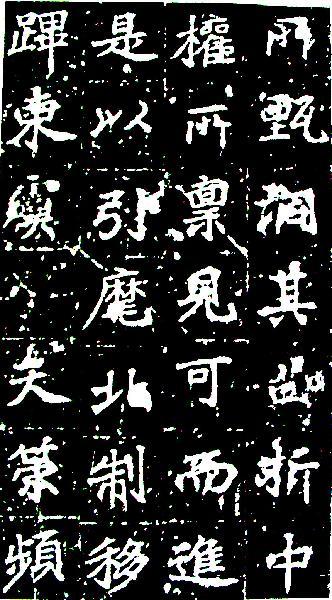 所甄洞其曲折中
權所稟見可而進
是以引麾北制移
蹕東夫策頻